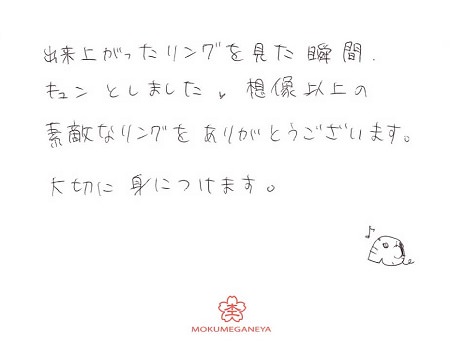 出来上がったリングを見た瞬間、
キュンとしました。想像以上の
素敵なリングをありがとうございます。
大切に身につけます。
MOKUMEGANEYA